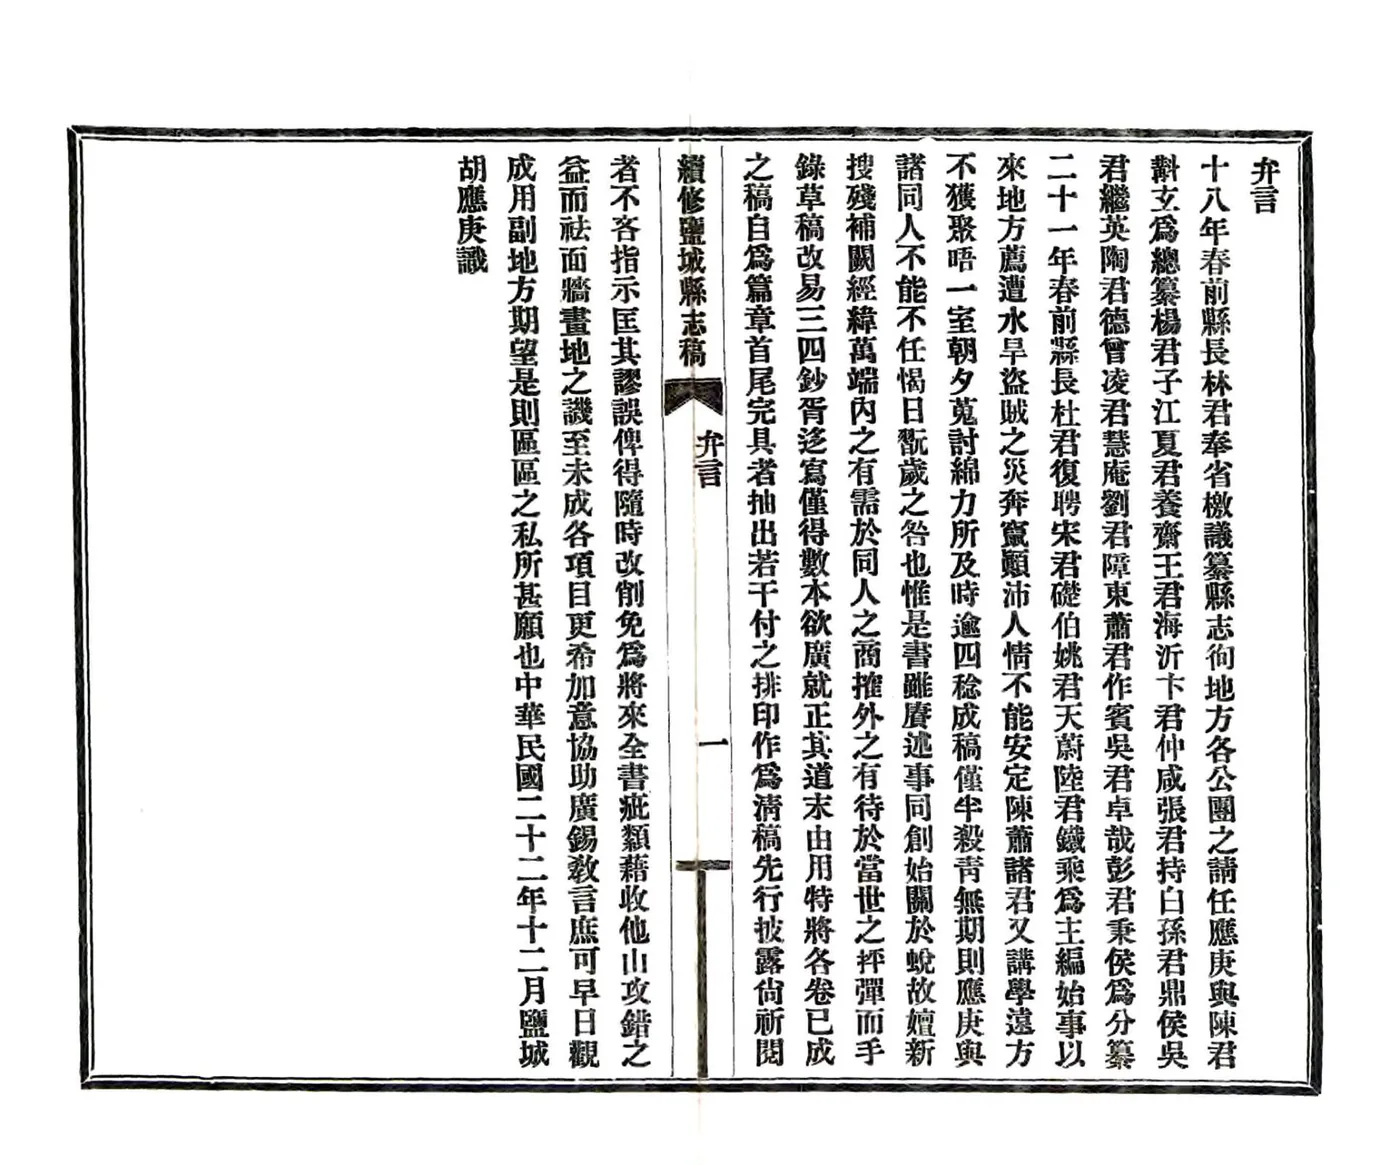 弁言
十八年春前縣長林君奉省檄議纂縣志徇地方各公團之請任應庚與陳君
斠玄爲總纂楊君子江夏君養齋王君海沂卞君仲咸張君持白孫君鼎侯吳
君繼英陶君德曾凌君慧庵劉君障東蕭君作賓吳君卓哉彭君秉侯爲分纂
二十一年春前縣長杜君復聘宋君礎伯姚君天蔚陸君鐵乘爲主編始事以
來地方薦遭水旱盜賊之災奔竄顚沛人情不能安定陳蕭諸君又講學遠方
不獲聚晤一室朝夕蒐討綿力所及時逾四稔成稿僅半殺靑無期則應庚與
諸同人不能不任愒日翫歲之咎也惟是書雖賡述事同創始關於蛻故嬗新
搜殘補闕經緯萬端內之有需於同人之商搉外之有待於當世之抨彈而手
錄草稿改易三四鈔胥迻寫僅得數本欲廣就正其道末由用特將各卷已成
之稿自爲篇章首尾完具者抽出若干付之排印作爲淸稿先行披露尙祈閱
續修鹽城縣志稿
弁言
一
者不吝指示匡其謬誤俾得隨時改削免爲將來全書疵纇藉收他山攻錯之
益而祛面牆畫地之譏至未成各項目更希加意協助廣錫敎言庶可早日觀
成用副地方期望是則區區之私所甚願也中華民國二十二年十二月鹽城
胡應庚識